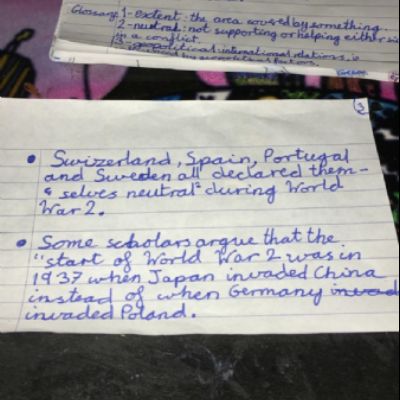 Glossary: 1-extent: the area covered by something.
2-neutral: not supporting or helping either si
in a conflict.
3-geopolitical: international relations, is
by geopolitical factors.
3
• Swizerland, Spain, Portugal
and Sweden all declared them-
selves neutral² during World
War 2.
• Some scholars argue that the
"start of World War 2 was in
1937 when Japan invaded China
instead of when Germany invad
invaded Poland.